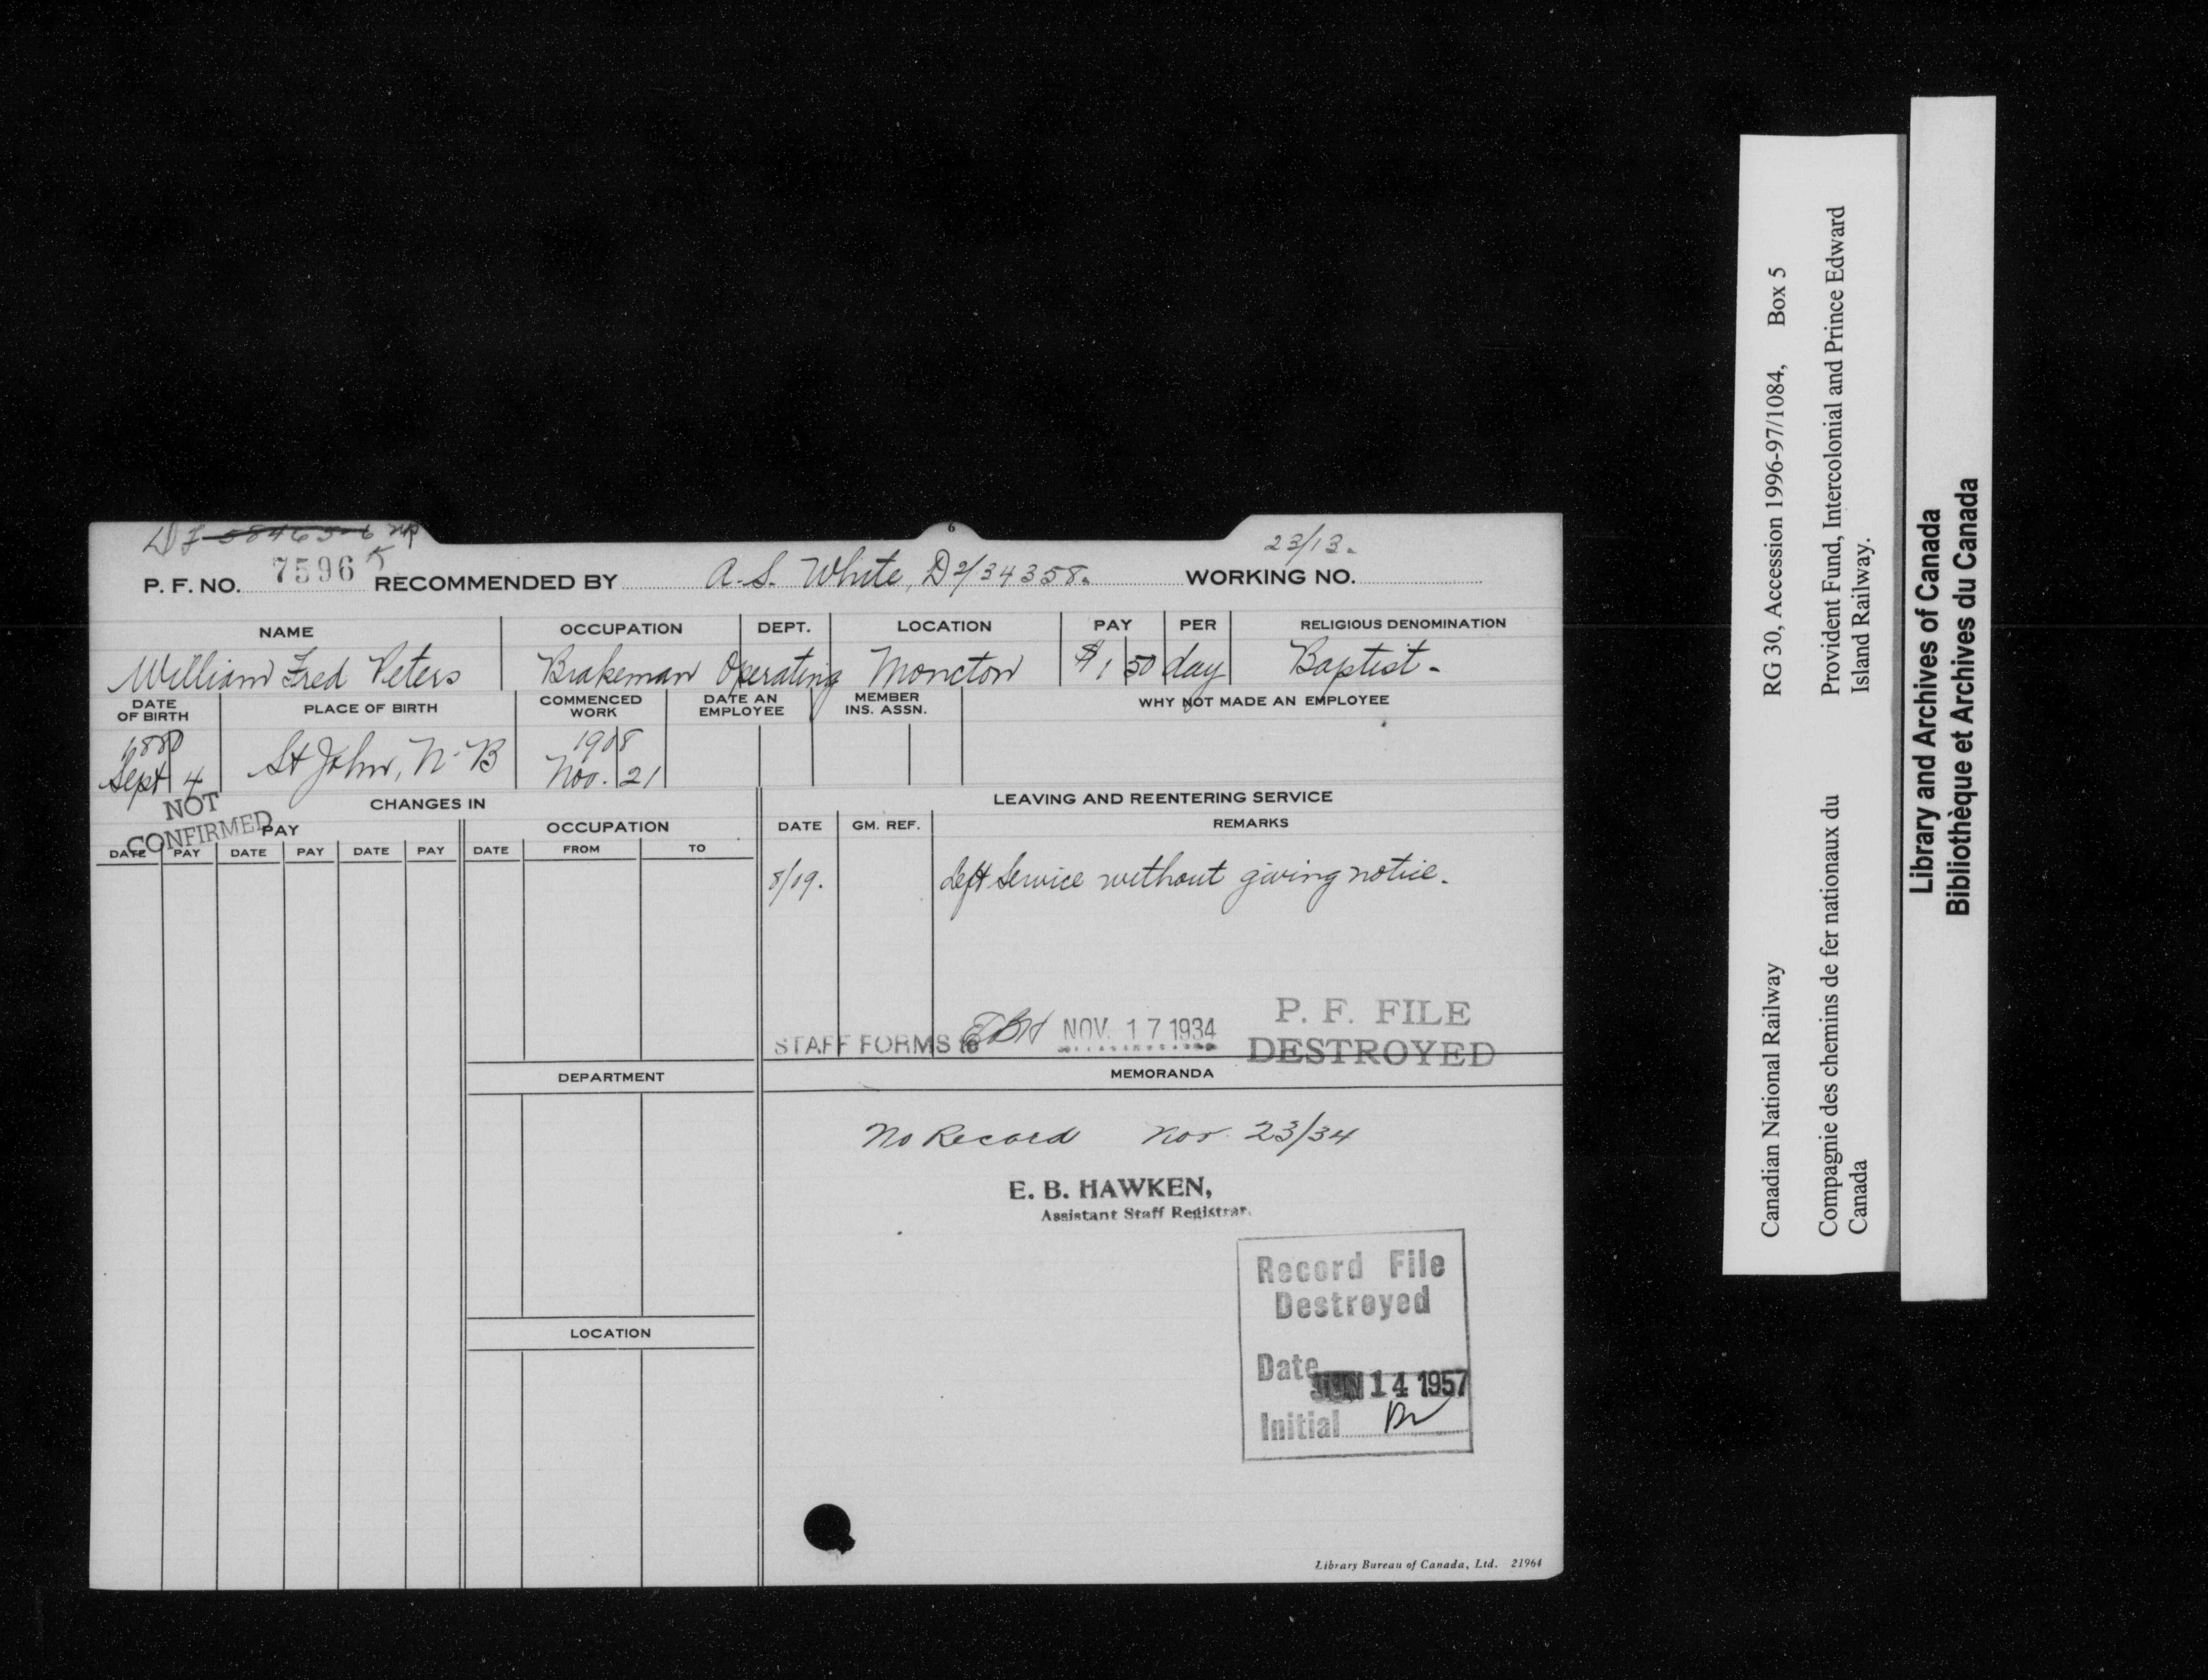 6
23/13.
P. F. NO. 7596 RECOMMENDED BY A. S. White, D2/34358. WORKING NO.
NAME OCCUPATION DEPT. LOCATION PAY PER RELIGIOUS DENOMINATION
William Fred Peters Brakeman Operating Moncton $1 50 day Baptist-
DATE OF BIRTH PLACE OF BIRTH COMMENCED WORK DATE AN EMPLOYEE MEMBER INS. ASSN. WHY NOT MADE AN EMPLOYEE
1880 1908
Sept 4 St John, N-B Nov. 21
NOT
CONFIRMED
CHANGES IN LEAVING AND REENTERING SERVICE
PAY OCCUPATION DATE GM. REF. REMARKS
DATE PAY DATE PAY DATE PAY DATE FROM TO
8/09. Left Service without giving notice.
STAFF FORMS to EBH NOV. 17 1934 P. F. FILE
DESTROYED
DEPARTMENT MEMORANDA
No Record Nov. 23/34
E. B. HAWKEN,
Assistant Staff Registrar.
Record File
Destroyed
Date JUN 14 1957
Initial
LOCATION
Library Bureau of Canada, Ltd. 21964
Canadian National Railway RG 30, Accession 1996-97/1084, Box 5
Compagnie des chemins de fer nationaux du Provident Fund, Intercolonial and Prince Edward
Canada Island Railway.
Library and Archives of Canada
Bibliothèque et Archives du Canada